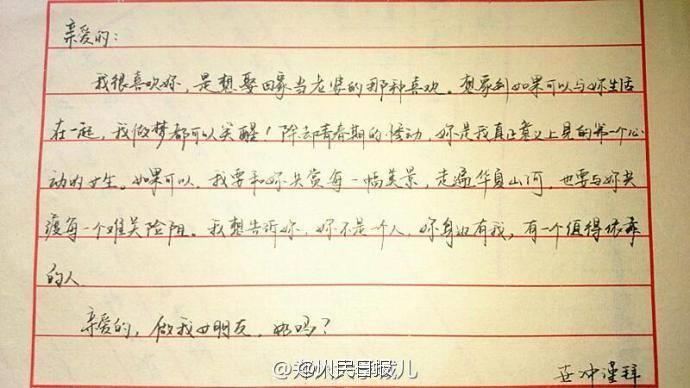 亲爱的：
我很喜欢妳，是想娶回家当老婆的那种喜欢。想象到如果可以与妳生活
在一起，我做梦都可以笑醒！除却青春期的悸动，妳是我真正意义上见的第一个心
动的女生。如果可以，我要和妳共赏每一幅美景，走遍华夏山河，也要与妳共
渡每一个难关险阻。我想告诉妳，妳不是一个人，妳身边有我，有一个值得依靠
的人
亲爱的，做我女朋友，好吗？
冲谨拜